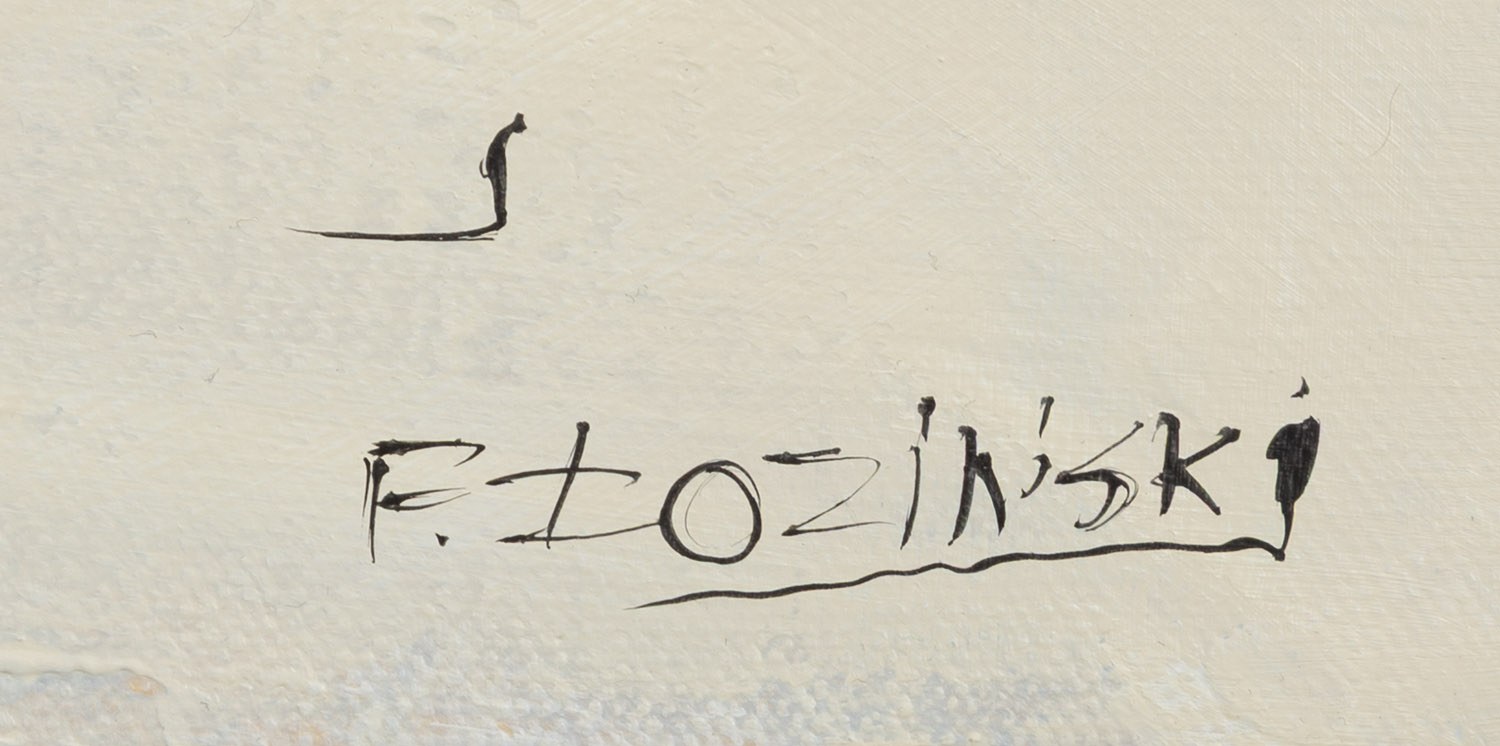 F. ŁOZIŃSKi